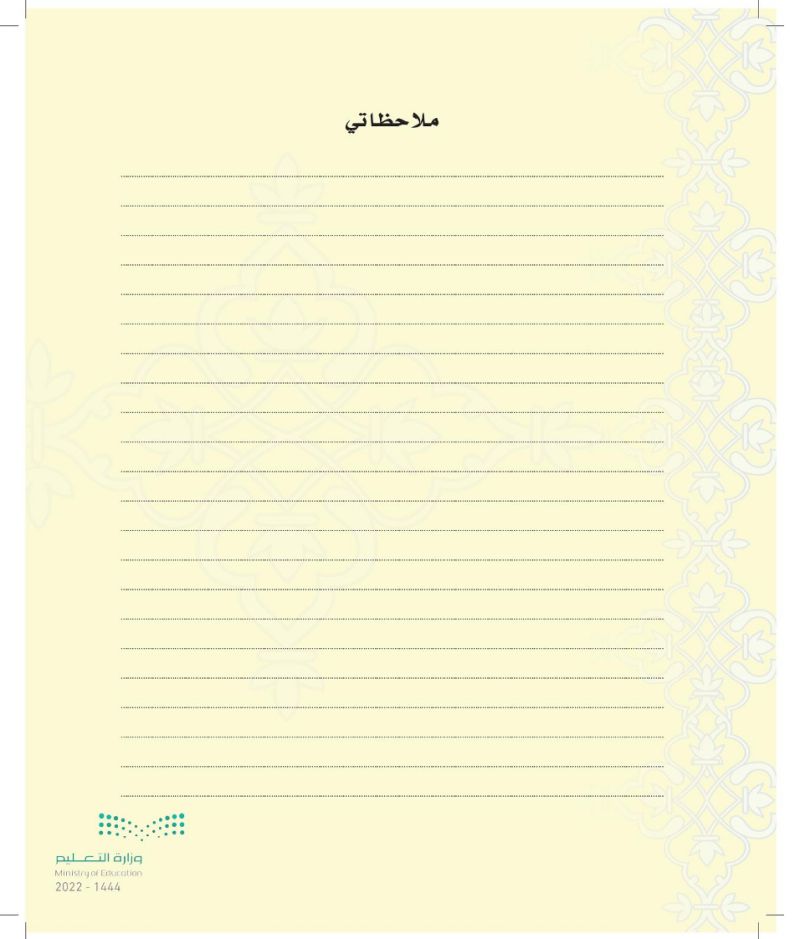 ملاحظاتي
وزارة التعليم
Ministry of Education
2022 - 1444